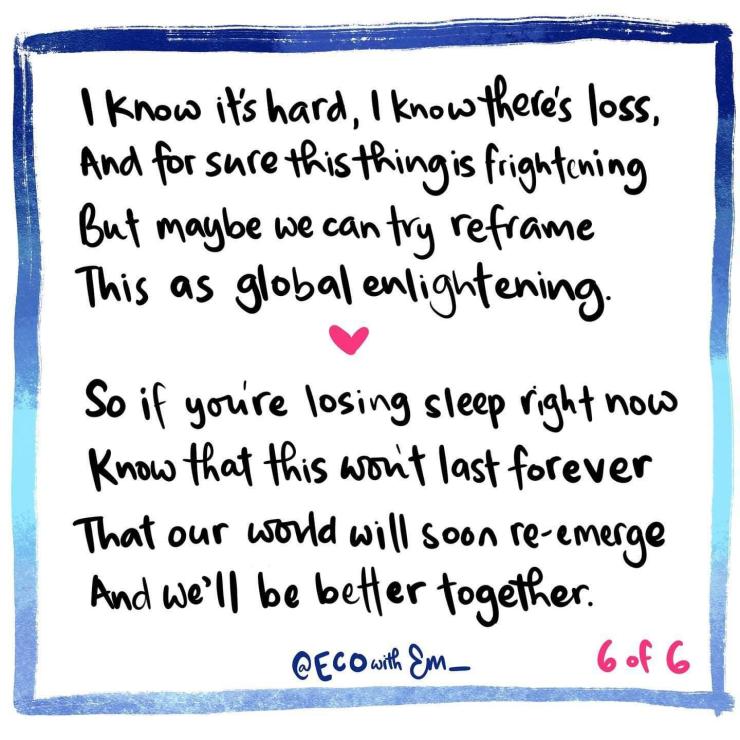 I know it's hard, I know there's loss,
And for sure this thing is frightening
But maybe we can try reframe
This as global enlightening.
So if you're losing sleep right now
Know that this won't last forever
That our world will soon re-emerge
And we'll be better together.
@ECO with Em_
6 of 6